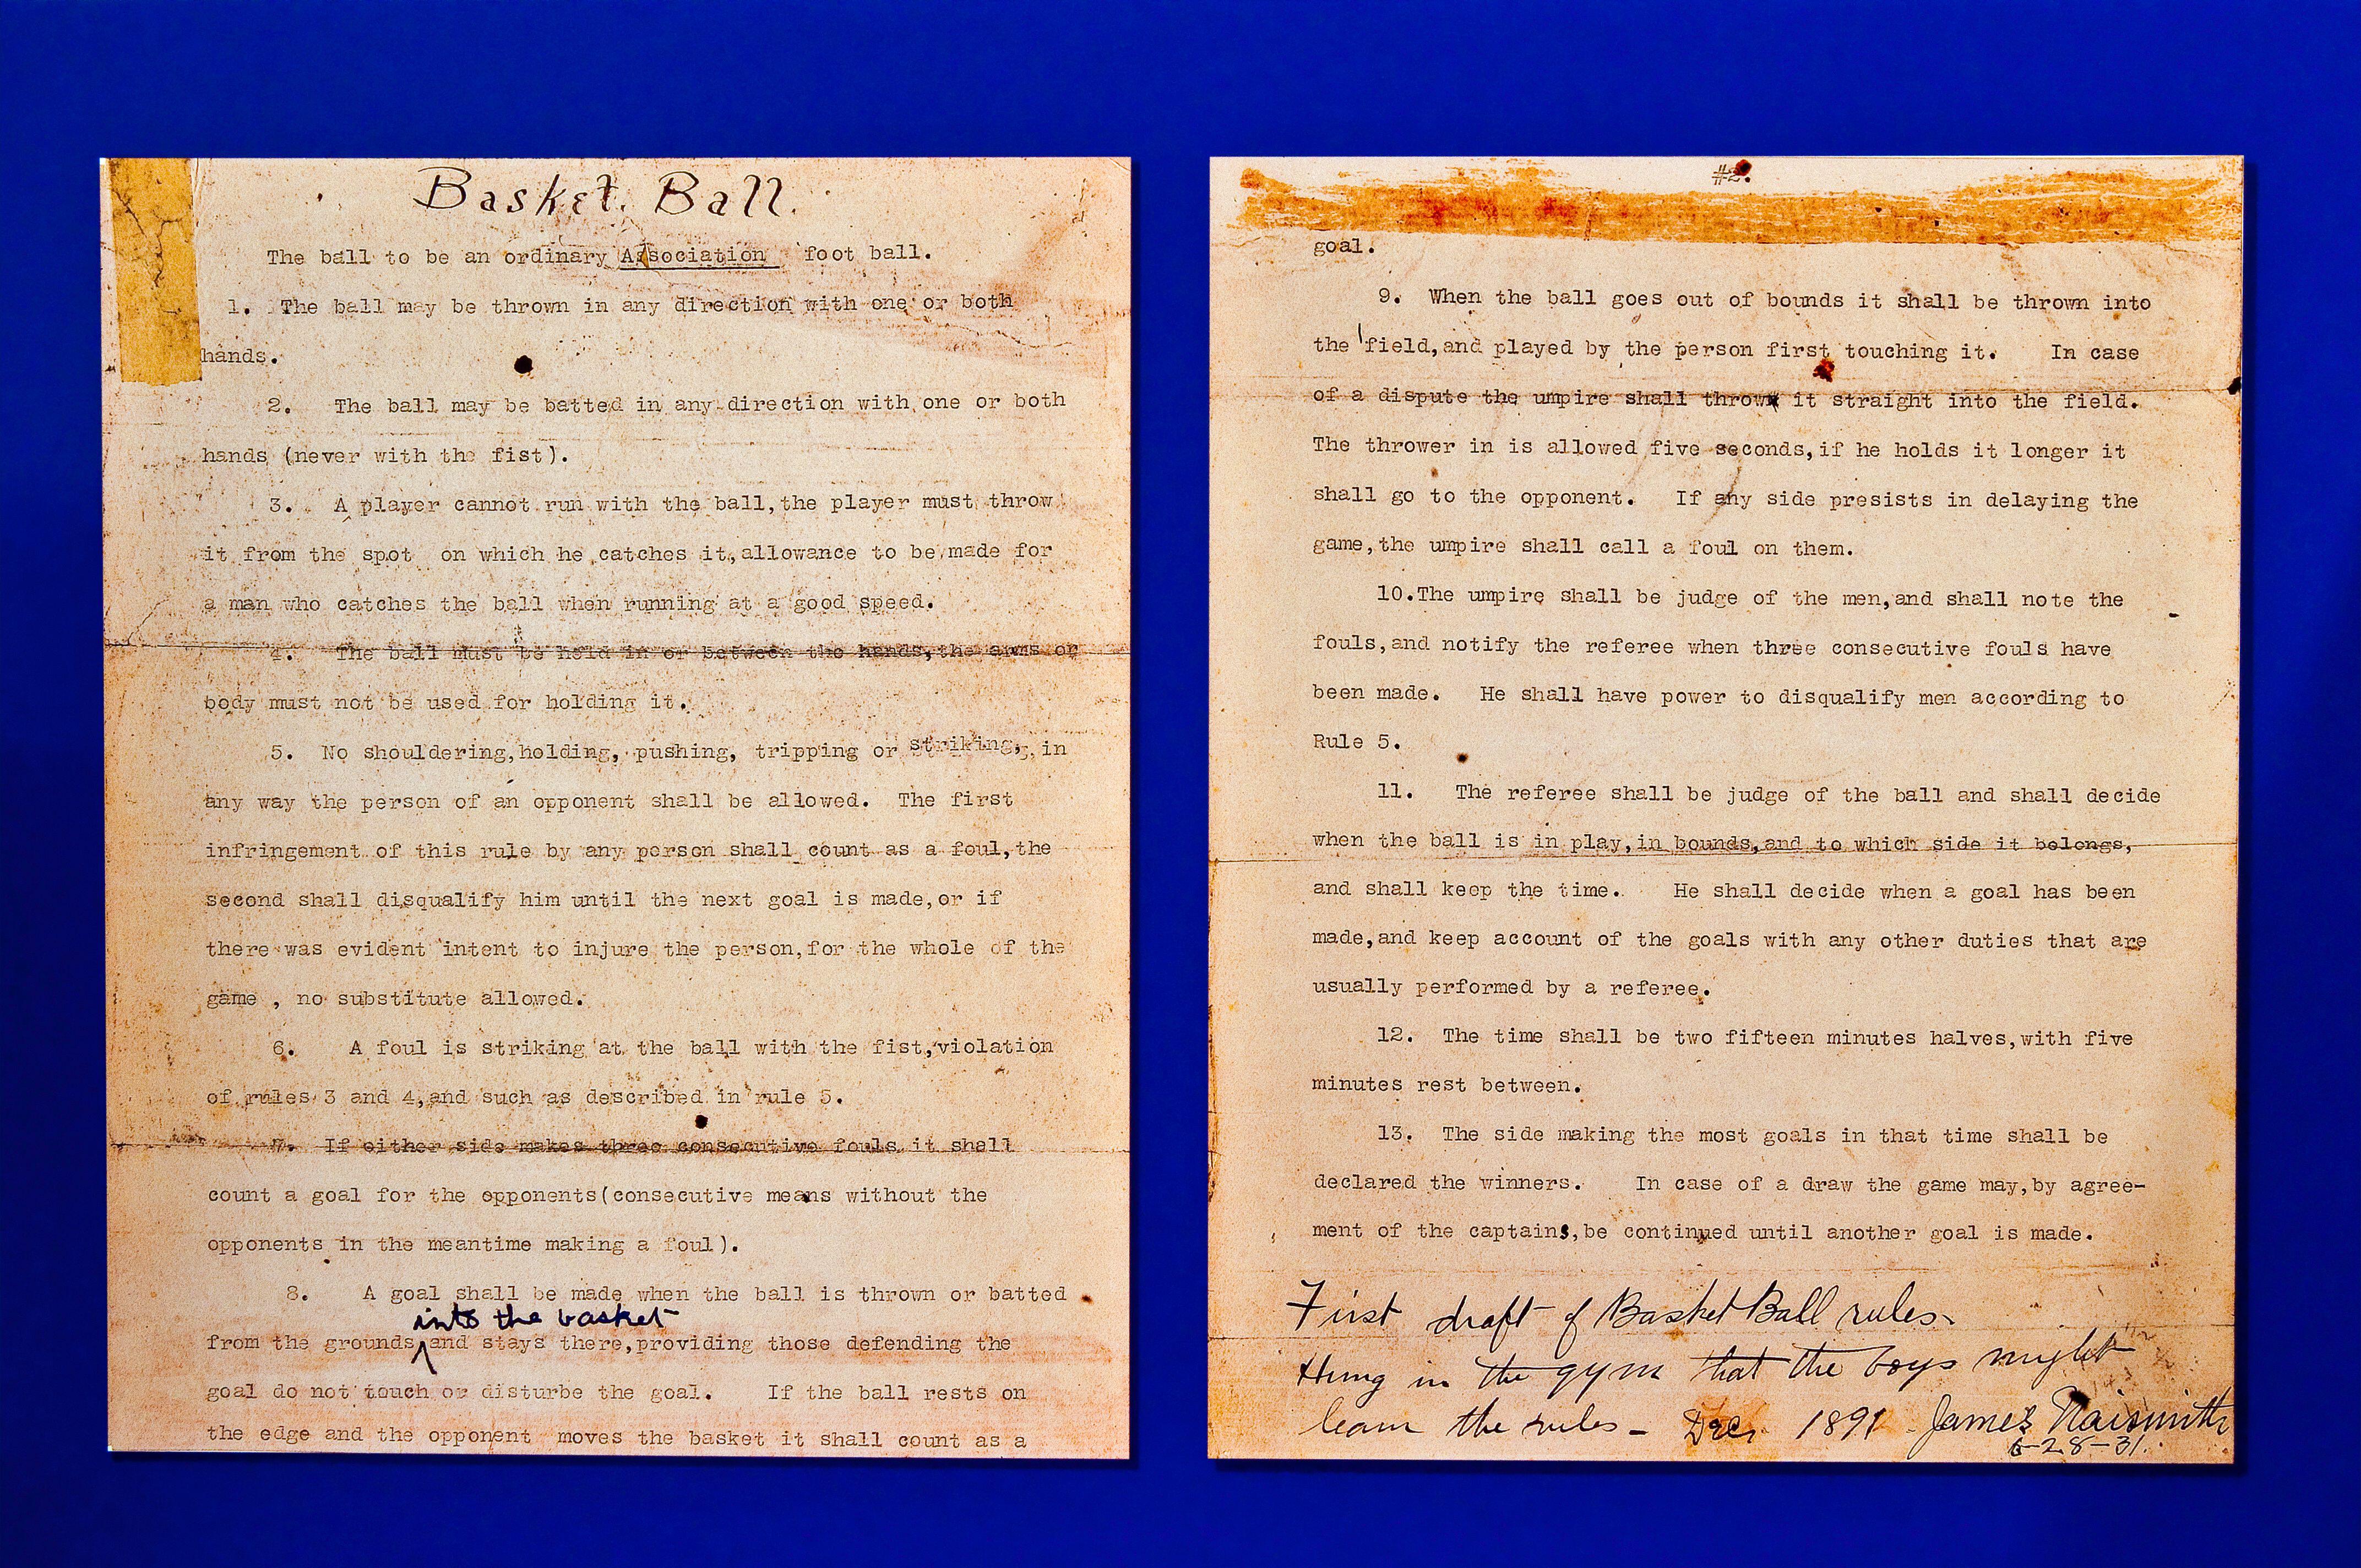 Basket Ball.
The ball to be an ordinary Association foot ball.
1. The ball may be thrown in any direction with one or both
hands.
2. The ball may be batted in any direction with one or both
hands (never with the fist).
3. A player cannot run with the ball,the player must throw
it from the spot on which he catches it,allowance to be made for
a man who catches the ball when running at a good speed.
4. The ball must be held in or between the hands,the arms or
body must not be used for holding it.
5. No shouldering,holding, pushing, tripping or striking, in
any way the person of an opponent shall be allowed. The first
infringement of this rule by any person shall count as a foul,the
second shall disqualify him until the next goal is made,or if
there was evident intent to injure the person,for the whole of the
game , no substitute allowed.
6. A foul is striking at the ball with the fist,violation
of rules 3 and 4,and such as described in rule 5.
7. If either side makes three consecutive fouls it shall
count a goal for the opponents(consecutive means without the
opponents in the meantime making a foul).
8. A goal shall be made when the ball is thrown or batted
into the basket
from the grounds and stays there,providing those defending the
goal do not touch or disturbe the goal. If the ball rests on
the edge and the opponent moves the basket it shall count as a
#2.
goal.
9. When the ball goes out of bounds it shall be thrown into
the field,and played by the person first touching it. In case
of a dispute the umpire shall throw it straight into the field.
The thrower in is allowed five seconds,if he holds it longer it
shall go to the opponent. If any side presists in delaying the
game,the umpire shall call a foul on them.
10.The umpire shall be judge of the men,and shall note the
fouls,and notify the referee when three consecutive fouls have
been made. He shall have power to disqualify men according to
Rule 5.
11. The referee shall be judge of the ball and shall decide
when the ball is in play,in bounds,and to which side it belongs,
and shall keep the time. He shall decide when a goal has been
made,and keep account of the goals with any other duties that are
usually performed by a referee.
12. The time shall be two fifteen minutes halves,with five
minutes rest between.
13. The side making the most goals in that time shall be
declared the winners. In case of a draw the game may,by agree-
ment of the captains,be continued until another goal is made.
First draft of Basket Ball rules.
Hung in the gym that the boys might
learn the rules - Dec. 1891 James Naismith
6-28-31.